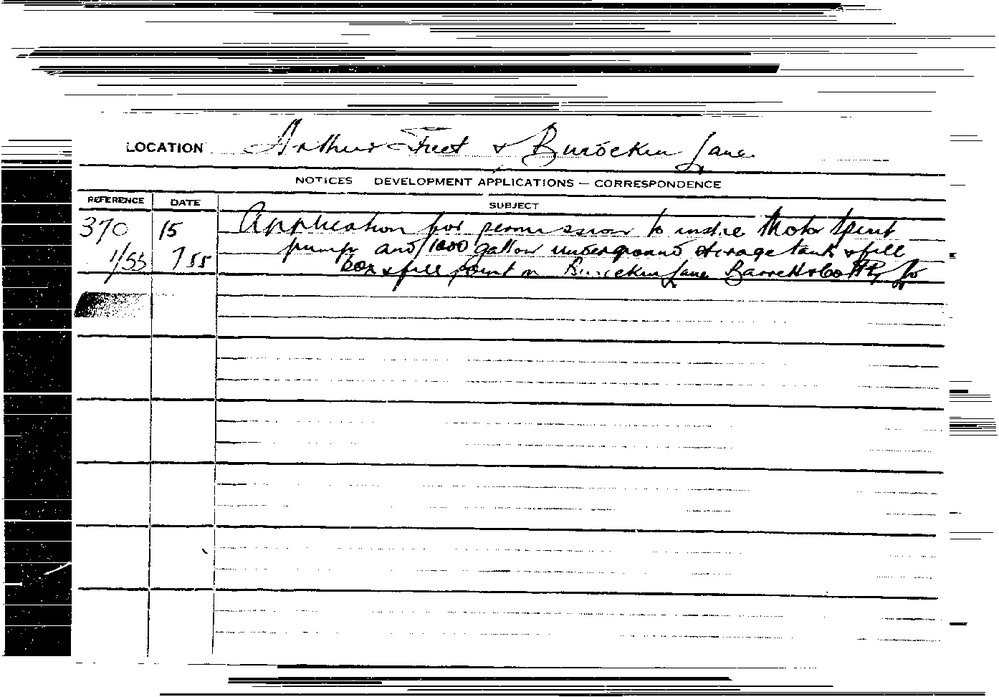 LOCATION Arthur Street & Burrockin Lane
NOTICES DEVELOPMENT APPLICATIONS – CORRESPONDENCE
REFERENCE DATE SUBJECT
370 15 Application for permission to Motor Spirit
1/55 7 55 pump and 1000 gallon underground storage tank & fill
box & fill point in Lane Barrett & Co Pty